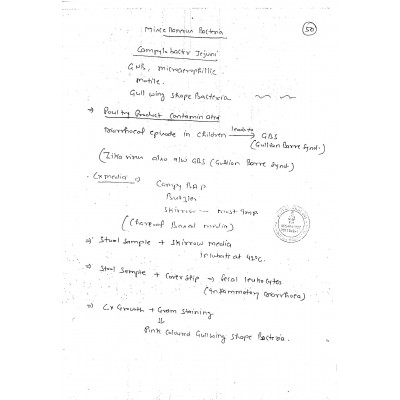 50
Campylobactr Jejuni
GNB, microaerophillic
motile.
Gull wing shape Bacteria
→ Poultry Product contaminated
Diarrhoeal episode in children leads to GBS
(Gullian Barre Synd.)
(Zika virus also a/w GBS (Gullian Barre Synd)
Cx media →
Campy BAP
Butzler
Skirrow — most Imp
(Charcoal Basal media)
→ Stool Sample + Skirrow media
Incubate at 42°C.
→ Stool Sample + Coverslip → fecal leukocytes
(Inflammatory Diarrhoea)
→ Cx Growth + Gram staining
Pink coloured Gullwing shape Bacteria.